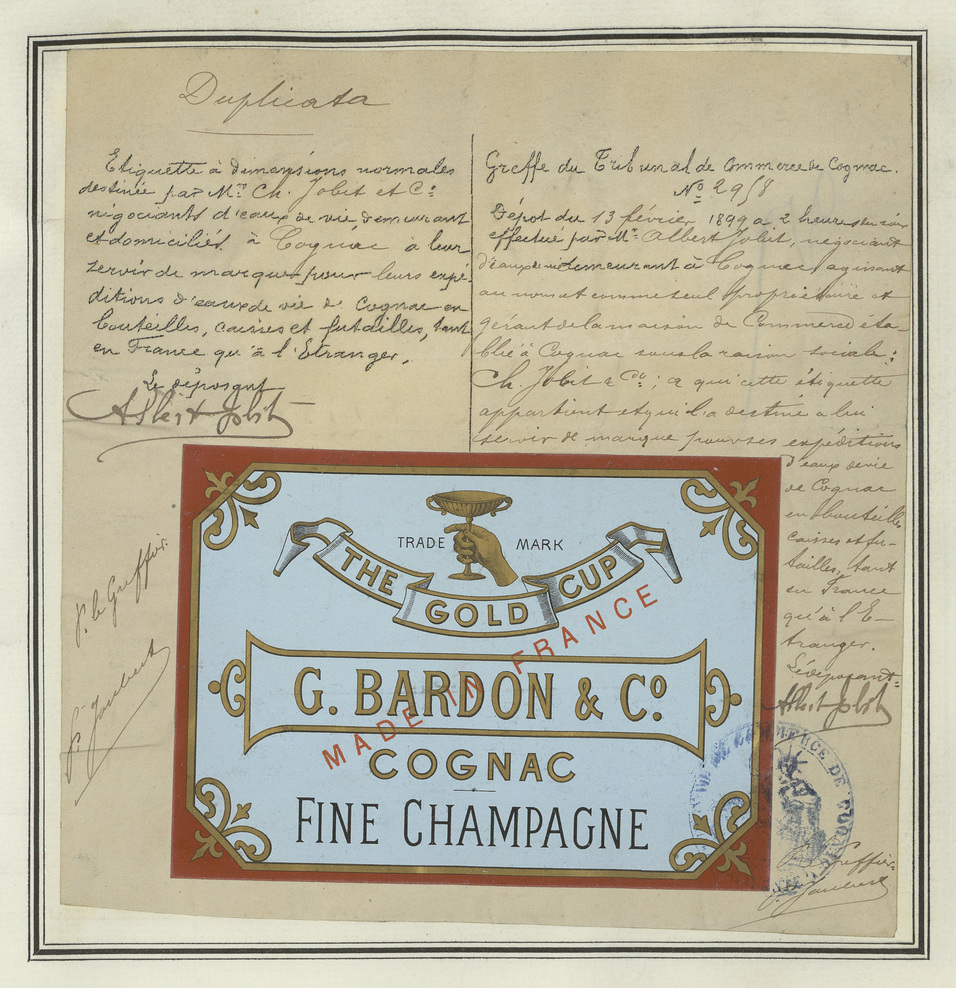 Duplicata
Etiquette à dimensions normales
destinée par Mrs Ch. Jobit et Cie
négociants d'eaux de vie demeurant
et domiciliés à Cognac à leur
servir de marque pour leurs expé-
ditions d'eaux de vie de Cognac en
bouteilles, caisses et futailles, tant
en France qu'à l'Etranger.
Le déposant
Albert Jobit
Greffe du Tribunal de Commerce de Cognac.
No 2958
Dépot du 13 février 1899 a 2 heures du soir
effectué par Mr Albert Jobit, négociant
d'eaux de vie demeurant à Cognac agissant
au nom et comme seul propriétaire et
gérant de la maison de Commerce éta-
blie à Cognac sous la raison sociale:
Ch. Jobit & Cie; a qui cette étiquette
appartient et qui l'a destiné a lui
servir de marque pour ses expéditions
d'eaux de vie
de Cognac
en bouteilles
caisses et fu-
tailles, tant
en France
qu'à l'E-
tranger.
Le déposant
Albert Jobit
P. le Greffier.
P. Jaubert
TRADE MARK
THE GOLD CUP
MADE IN FRANCE
G. BARDON & Co.
COGNAC
FINE CHAMPAGNE
COMMERCE DE
Greffier
P. Jaubert